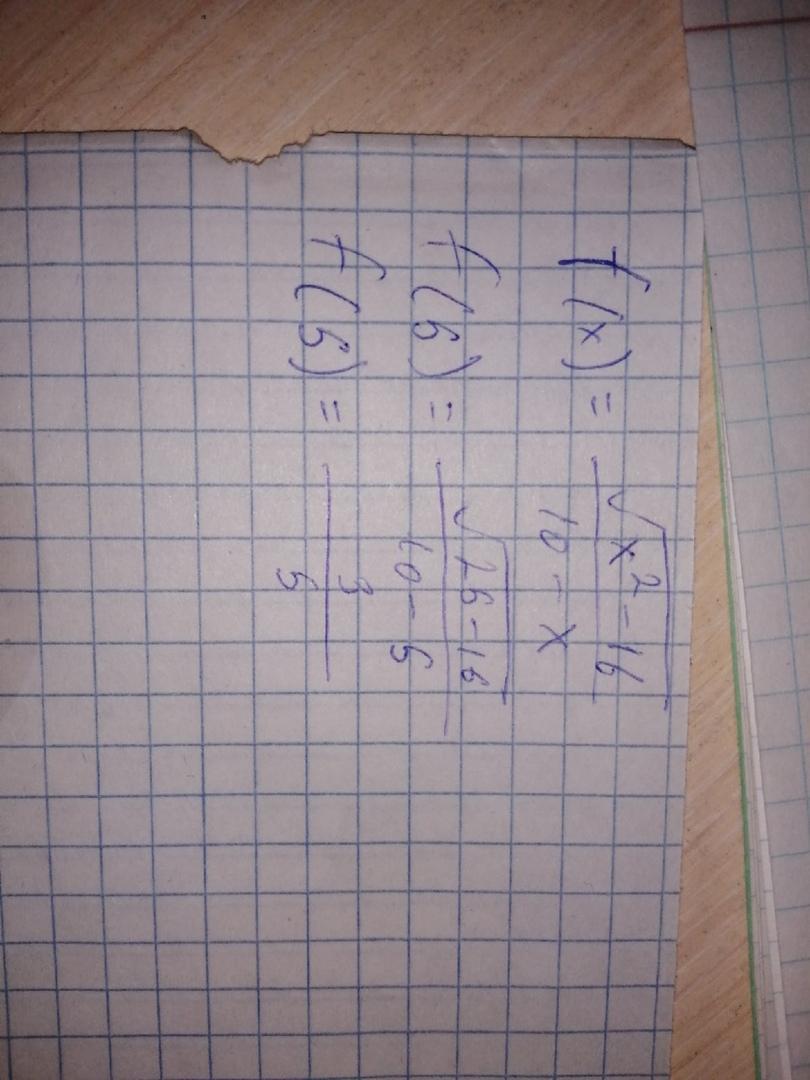 f(x) = √(x²-16) / (10 - x)
f(5) = √(25-16) / (10-5)
f(5) = 3 / 5